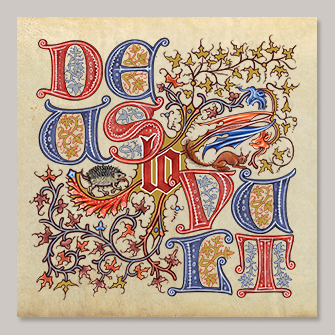 DE
US
lo
VU
LT